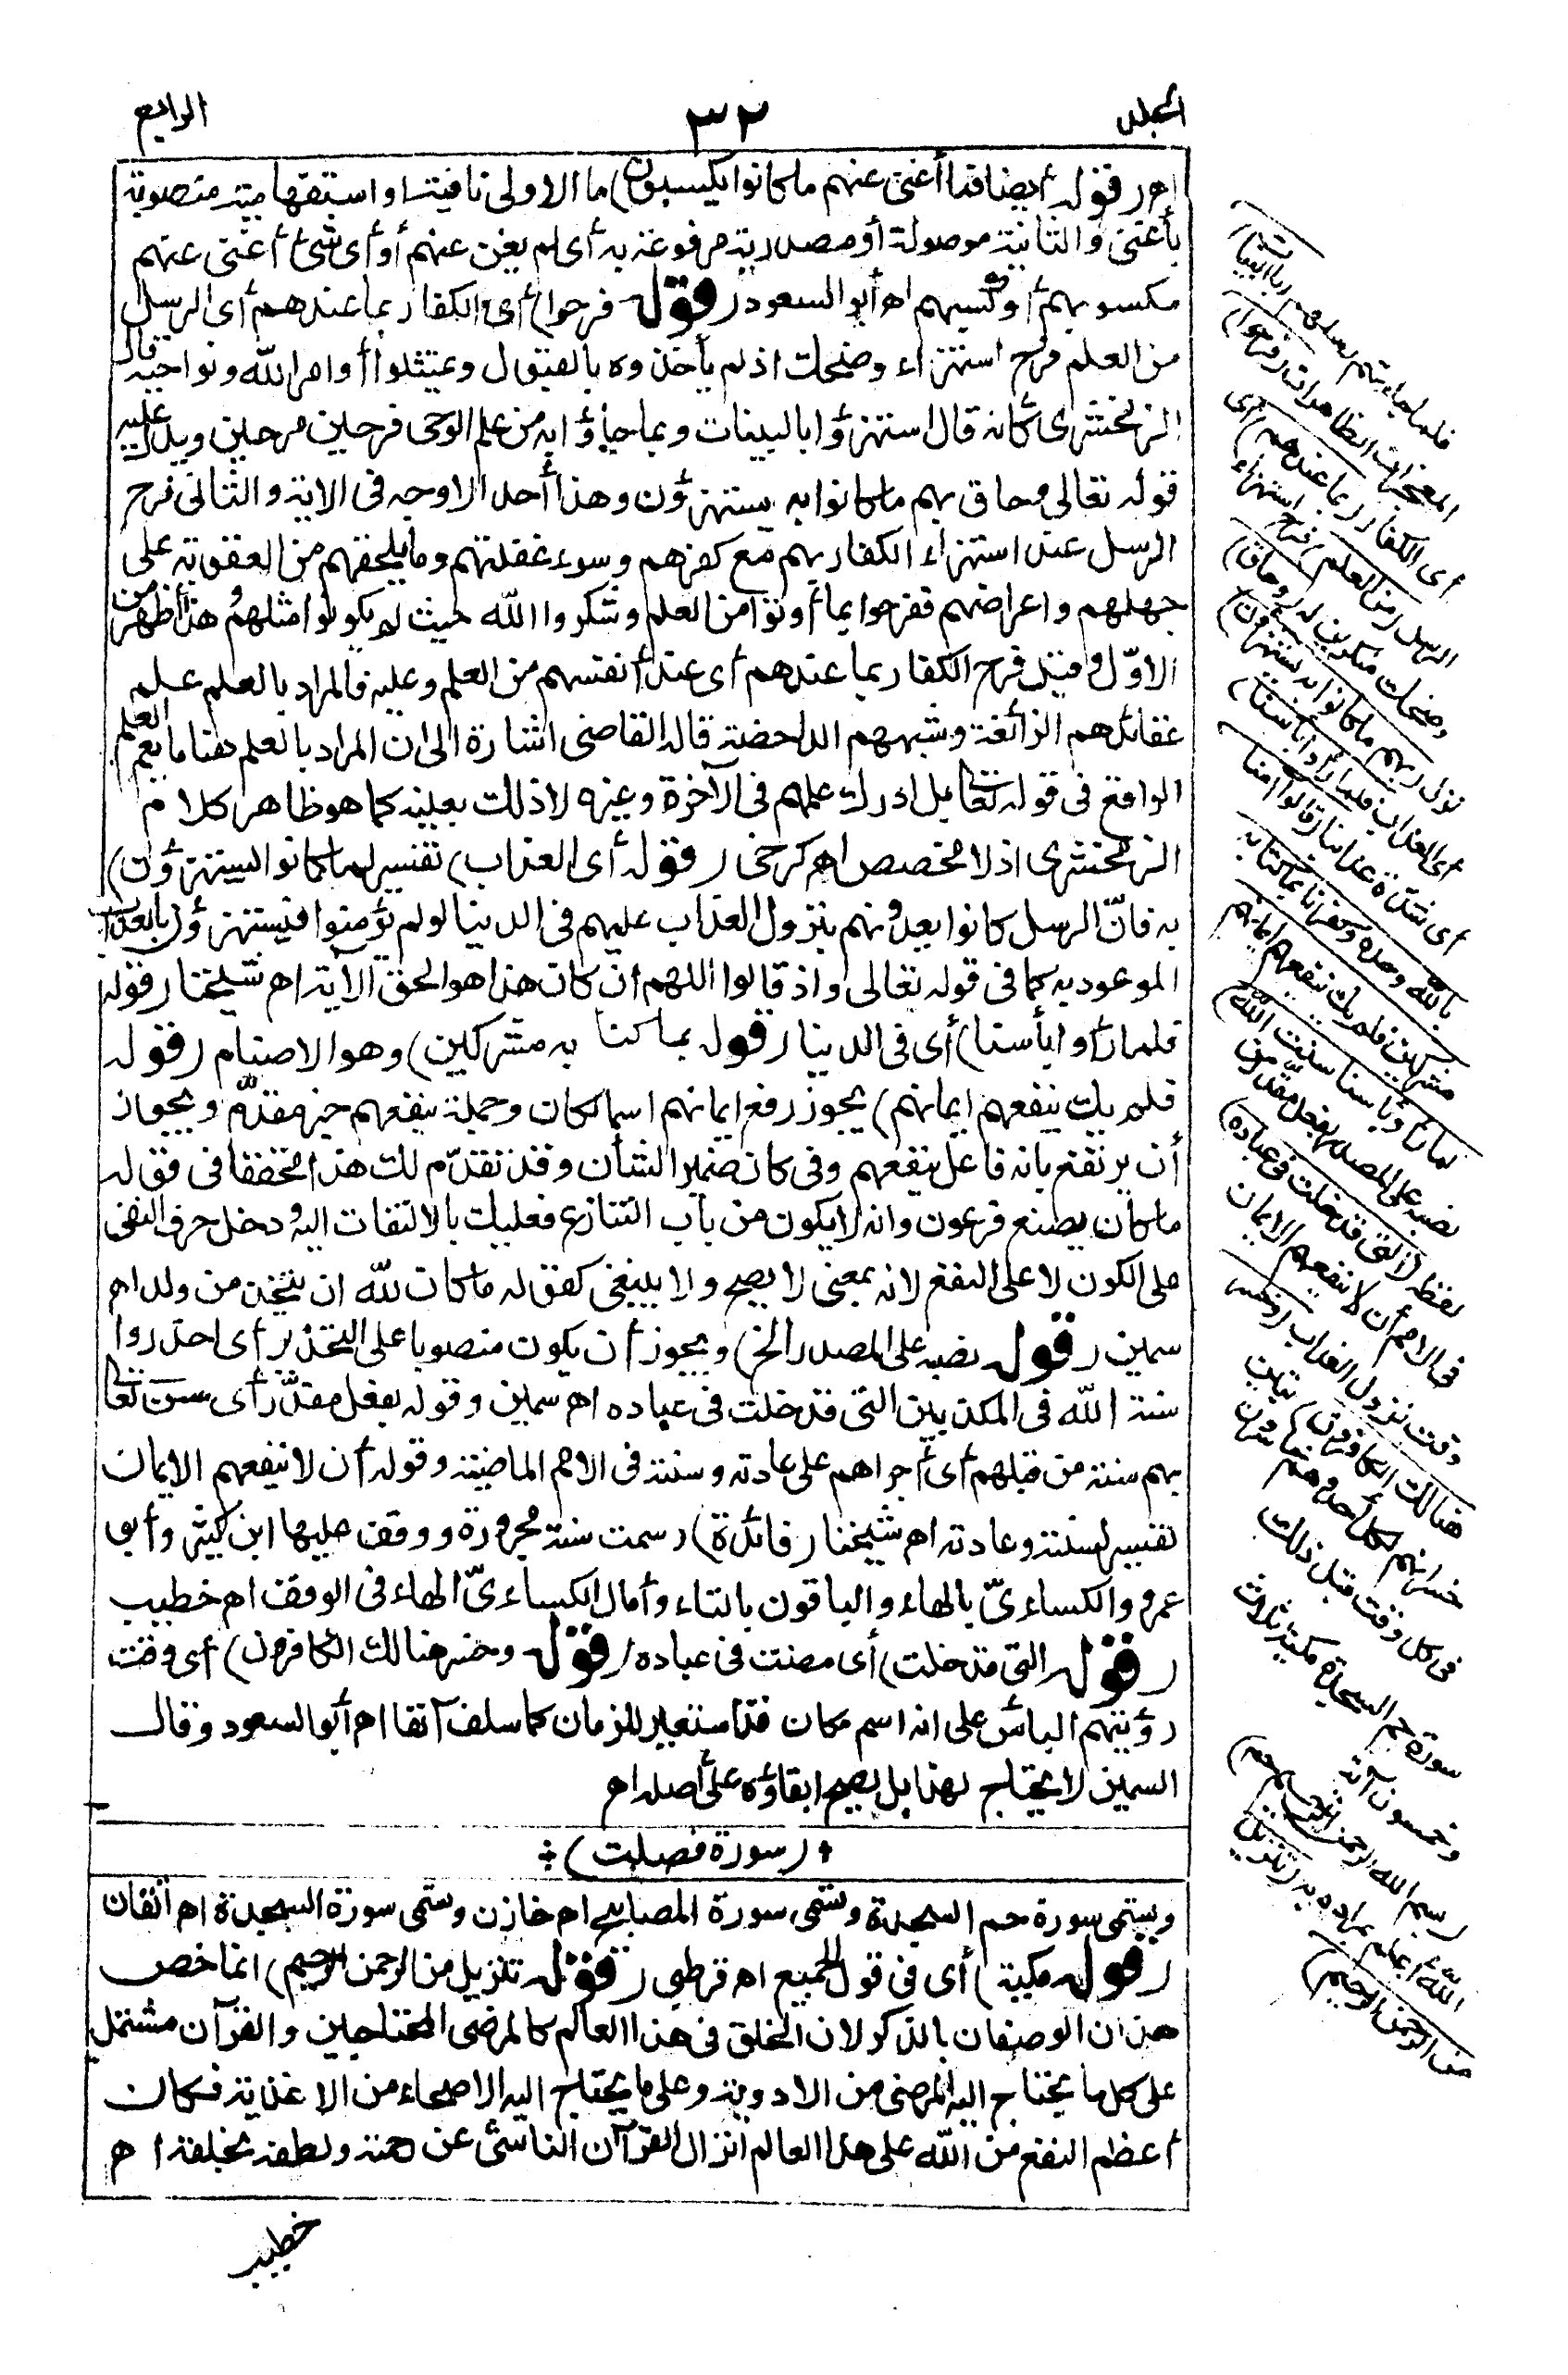 المجلد
٣٢
الرابع
اهـ (قوله أيضا فما أغنى عنهم ما كانوا يكسبون) ما الاولى نافية او استفهامية منصوبة
بأغنى والثانية موصولة أو مصدرية مرفوعة به أى لم يغن عنهم أو أى شئ أغنى عنهم
مكسوبهم أو كسبهم اهـ أبو السعود (قوله فرحوا) أى الكفار بما عندهم أى الرسل
من العلم فرح استهزاء وضحك اذ لم يأخذوه بالقبول ويمتثلوا أوامر الله ونواهيه قال
الزمخشرى كأنه قال استهزؤا بالبينات وبما جاؤا به من علم الوحى فرحين مرحين ويدل عليه
قوله تعالى وحاق بهم ما كانوا به يستهزؤن وهذا أحد الاوجه فى الاية والثانى فرح
الرسل عند استهزاء الكفار بهم مع كفرهم وسوء غفلتهم وما يلحقهم من العقوبة على
جهلهم واعراضهم ففرحوا بما أوتوا من العلم وشكروا الله حيث لم يكونوا مثلهم وهذا أظهر من
الاوّل وقيل فرح الكفار بما عندهم أى عند أنفسهم من العلم وعليه فالمراد بالعلم علم
عقائدهم الزائغة وشبههم الداحضة قاله القاضى اشارة الى ان المراد بالعلم هنا ما يعم العلم
الواقع فى قوله تعالى بل ادرك علمهم فى الآخرة وغيره لا ذلك بعينه كما هو ظاهر كلام
الزمخشرى اذ لا مخصص اهـ كرخى (قوله أى العذاب) تفسير لما كانوا ليستهزؤن)
به فانّ الرسل كانوا يعدونهم بنزول العذاب عليهم فى الدنيا لو لم يؤمنوا فيستهزؤن بالعذاب
الموعود به كما فى قوله تعالى واذ قالوا اللهم ان كان هذا هو الحق الآية اهـ شيخنا (قوله
فلما رأوا بأسنا) أى فى الدنيا (قوله بما كنا به مشركين) وهو الاصنام (قوله
فلم يك ينفعهم ايمانهم) يجوز رفع ايمانهم اسما لكان وجملة ينفعهم خبر مقدّم ويجوز
أن يرتفع بانه فاعل ينفعهم وفى كان ضمير الشأن وقد تقدّم لك هذا محققا فى قوله
ما كان يصنع فرعون وانه لا يكون من باب التنازع فعليك بالالتفات اليه ودخل حرف النفى
على الكون لا على النفع لانه بمعنى لا يصح ولا ينبغى كقوله ما كان لله ان يتخذ من ولد اهـ
سمين (قوله نصبه على المصدر الخ) ويجوز أن يكون منصوبا على التحذير أى احذروا
سنة الله فى المكذبين التى قد خلت فى عباده اهـ سمين وقوله بفعل مقدّر أى سن تعالى
بهم سنة من قبلهم أى أجراهم على عادته وسنته فى الامم الماضية وقوله أن لا ينفعهم الايمان
تفسير لسنته وعادته اهـ شيخنا (فائدة) رسمت سنة مجرورة ووقف عليها ابن كثير وأبو
عمرو والكساءىّ بالهاء والباقون بالتاء وأمال الكساءىّ الهاء فى الوقف اهـ خطيب
(قوله التى قد خلت) أى مضت فى عباده (قوله وخسر هنالك الكافرون) أى وقت
رؤيتهم البأس على انه اسم مكان قد استعير للزمان كما سلف آنفا اهـ أبو السعود وقال
السمين لا يحتاج لهذا بل يصح ابقاؤه على أصله اهـ
(سورة فصلت)
ويسمى سورة حم السجدة وتسمى سورة المصابيح اهـ خازن وتسمى سورة السجدة اهـ اتقان
(قوله مكية) أى فى قول الجميع اهـ قرطبى (قوله تنزيل من الرحمن الرحيم) انما خص
هذان الوصفان بالذكر لان الخلق فى هذا العالم كالمرضى المحتاجين والقرآن مشتمل
على كل ما يحتاج اليه المرضى من الادوية وعلى ما يحتاج اليه الاصحاء من الاغذية فكان
أعظم النفع من الله على هذا العالم انزال القرآن الناشئ عن رحمته ولطفه بخلقه اهـ
خطيب
فلما جاءتهم رسلهم بالبينات)
المعجزات الظاهرات (فرحوا)
أى الكفار (بما عندهم) أى
الرسل (من العلم) فرح استهزاء
وضحك منكرين له (وحاق)
نزل (بهم ما كانوا به يستهزؤن)
أى العذاب (فلما رأوا بأسنا)
أى شدّة عذابنا (قالوا آمنا
بالله وحده وكفرنا بما كنا به
مشركين فلم يك ينفعهم ايمانهم
لما رأوا بأسنا سنت الله)
نصبه على المصدر بفعل مقدّر من
لفظه (التى قد خلت فى عباده)
فى الامم أن لا ينفعهم الايمان
وقت نزول العذاب (وخسر
هنالك الكافرون) تبين
خسرانهم لكل أحد وهم خاسرون
فى كل وقت قبل ذلك
سورة حم السجدة مكية ثلاث
وخمسون آية
(بسم الله الرحمن الرحيم حم)
الله أعلم بمراده به (تنزيل
من الرحمن الرحيم)